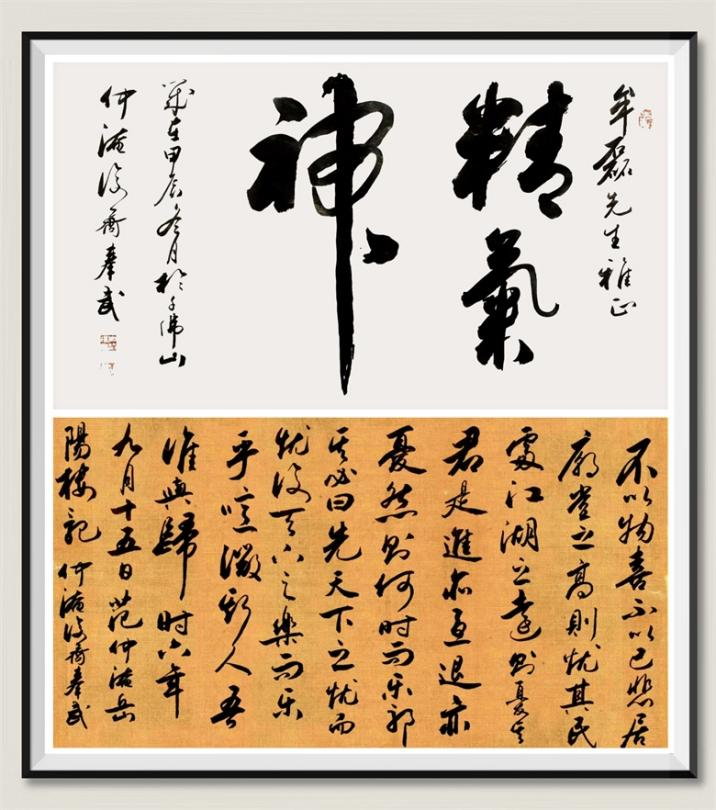 牟磊先生雅正
精氣
神
歲在甲辰冬月於千佛山
仲淹後裔奉武
不以物喜不以己悲居
廟堂之高則忧其民
處江湖之遠则憂其
君是進亦憂退亦
憂然则何时而乐耶
其必曰先天下之忧而
忧後天下之樂而乐
乎噫微斯人吾
誰與歸时六年
九月十五日范仲淹岳
陽樓記仲淹後裔奉武